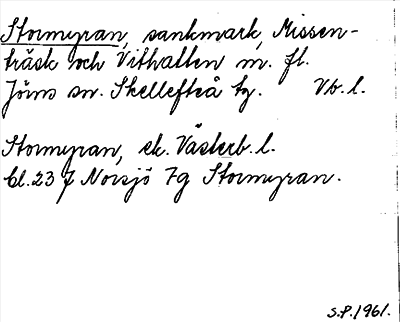 Stormyran, sankmark, Missen-
träsk och Vithatten m. fl.
Jörns sn. Skellefteå tg. Vb. l.
Stormyran, ek. Västerb. l.
bl. 23 J Norsjö 7g Stormyran.
S.P. 1961.